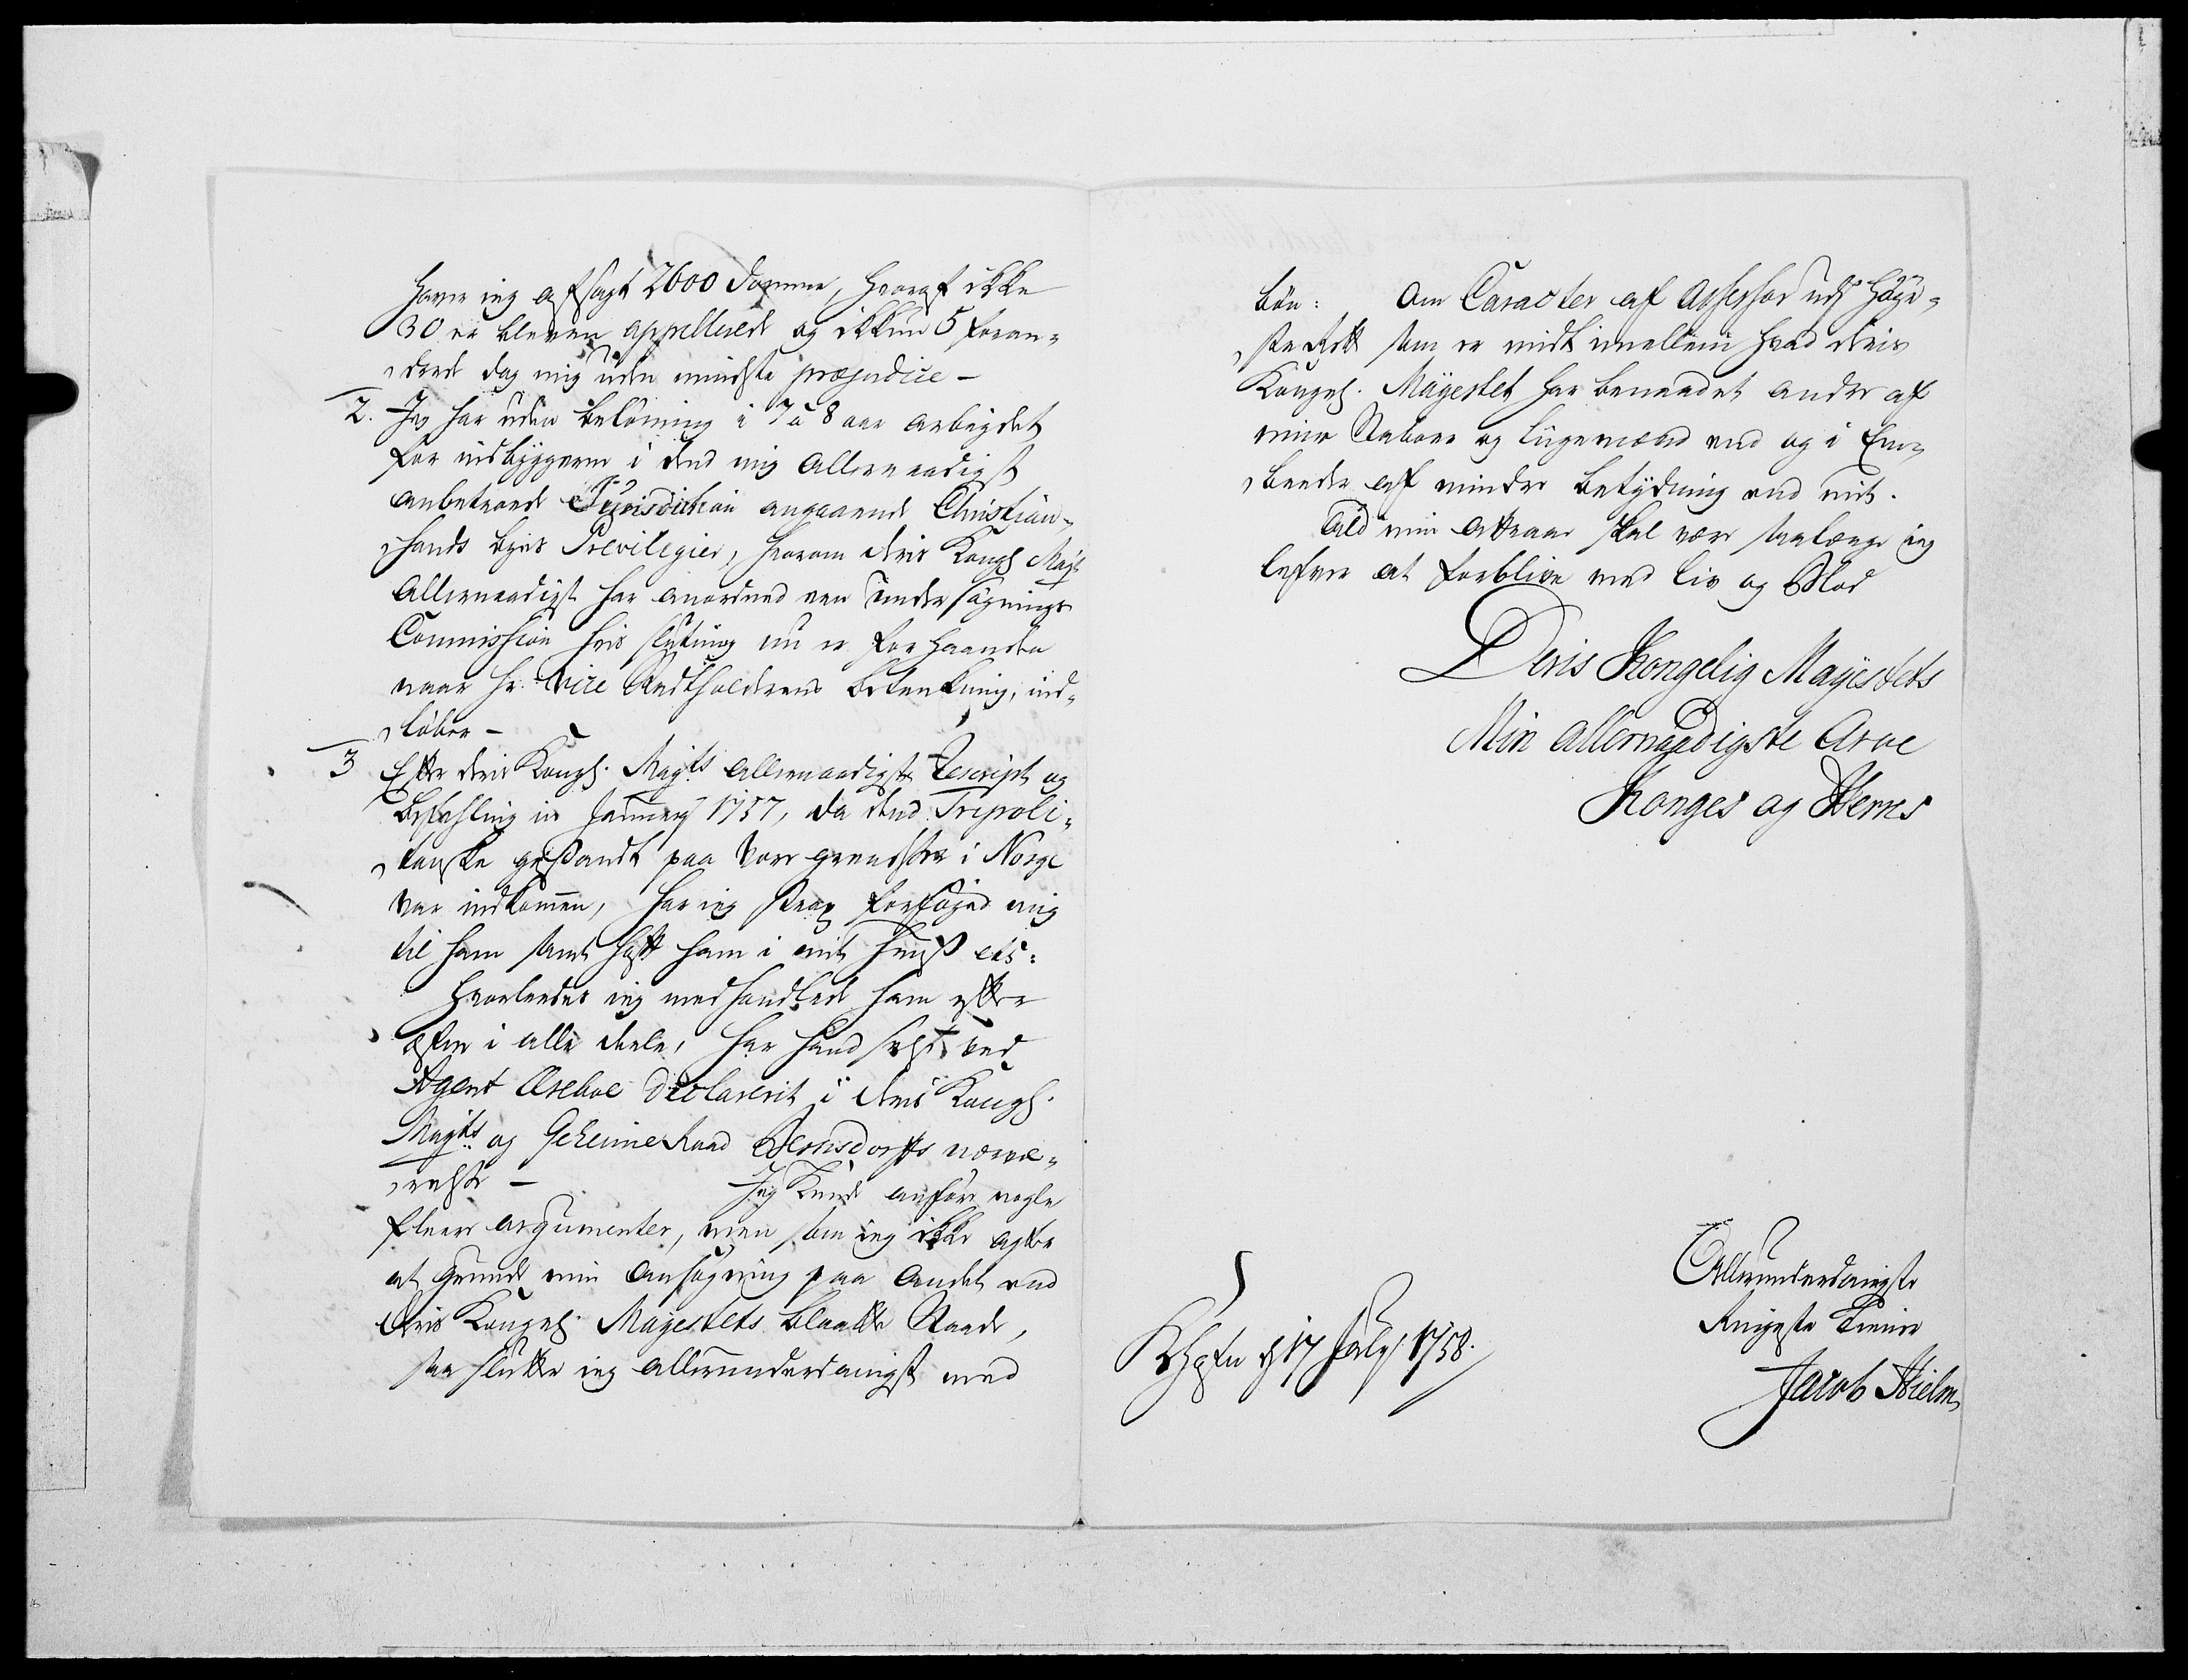 haver ieg afsagt 2600 Domme, hvoraf ikke
30 er bleven appellerede og ikkun 5 foran¬
drede dog mig uden mindste præjudice –
2. Jeg har uden belönning i 7 à 8 aar arbeydet
for indbyggerne i dend mig allernaadigst
anbetroede Jurisdiction angaaende Christian¬
sands byes Previlegier, hvorom deris Kongl Mayts
allernaadigst har anordned een undersögnings
Commission hvis slutning nu er forhaanden
naar Hr. Vice Stadtholderens betænkning, ind¬
löber –
3 Efter deris Kongl. Mayts allernaadigste Rescript og
Befahling in January 1757, da dend Tripoli¬
tanske gesandt paa vore grendser i Norge
var indkommen, har ieg strax forföyed mig
til ham samt haft ham i mit huuß etc:
hvorledes ieg medhandlede ham efter
æsken i alle deele, har hand selv ved
Agent declarerit i deris Kongl.
Mayts og Geheime Raad Bernsdorffs nærvæ¬
relse – Jeg kunde anföre nogle
fleere argumenter, men som ieg ikke agter
at grunde min ansögning paa andet end
Deris Kongel. Mayestets blaatte Naade,
saa slutter ieg allerunderdanigst med
bön: om Caracter af Assessor udj Höye¬
ste Rett som er midt imellem hvad deris
Kongel. Mayestet har benaadet andre af
mine Naboer og Ligemænd end og i Em¬
beeder af mindre betydning end mit.
Ald min attraae skal være saalænge ieg
lefver at forblive med Liv og Blod
Deris Kongelig Mayestets
Min allernaadigste Arve
Konges og Herres
Allerunderdanigste
Ringeste tiener
Jacob Hielm
Khafn d 17 July 1758.